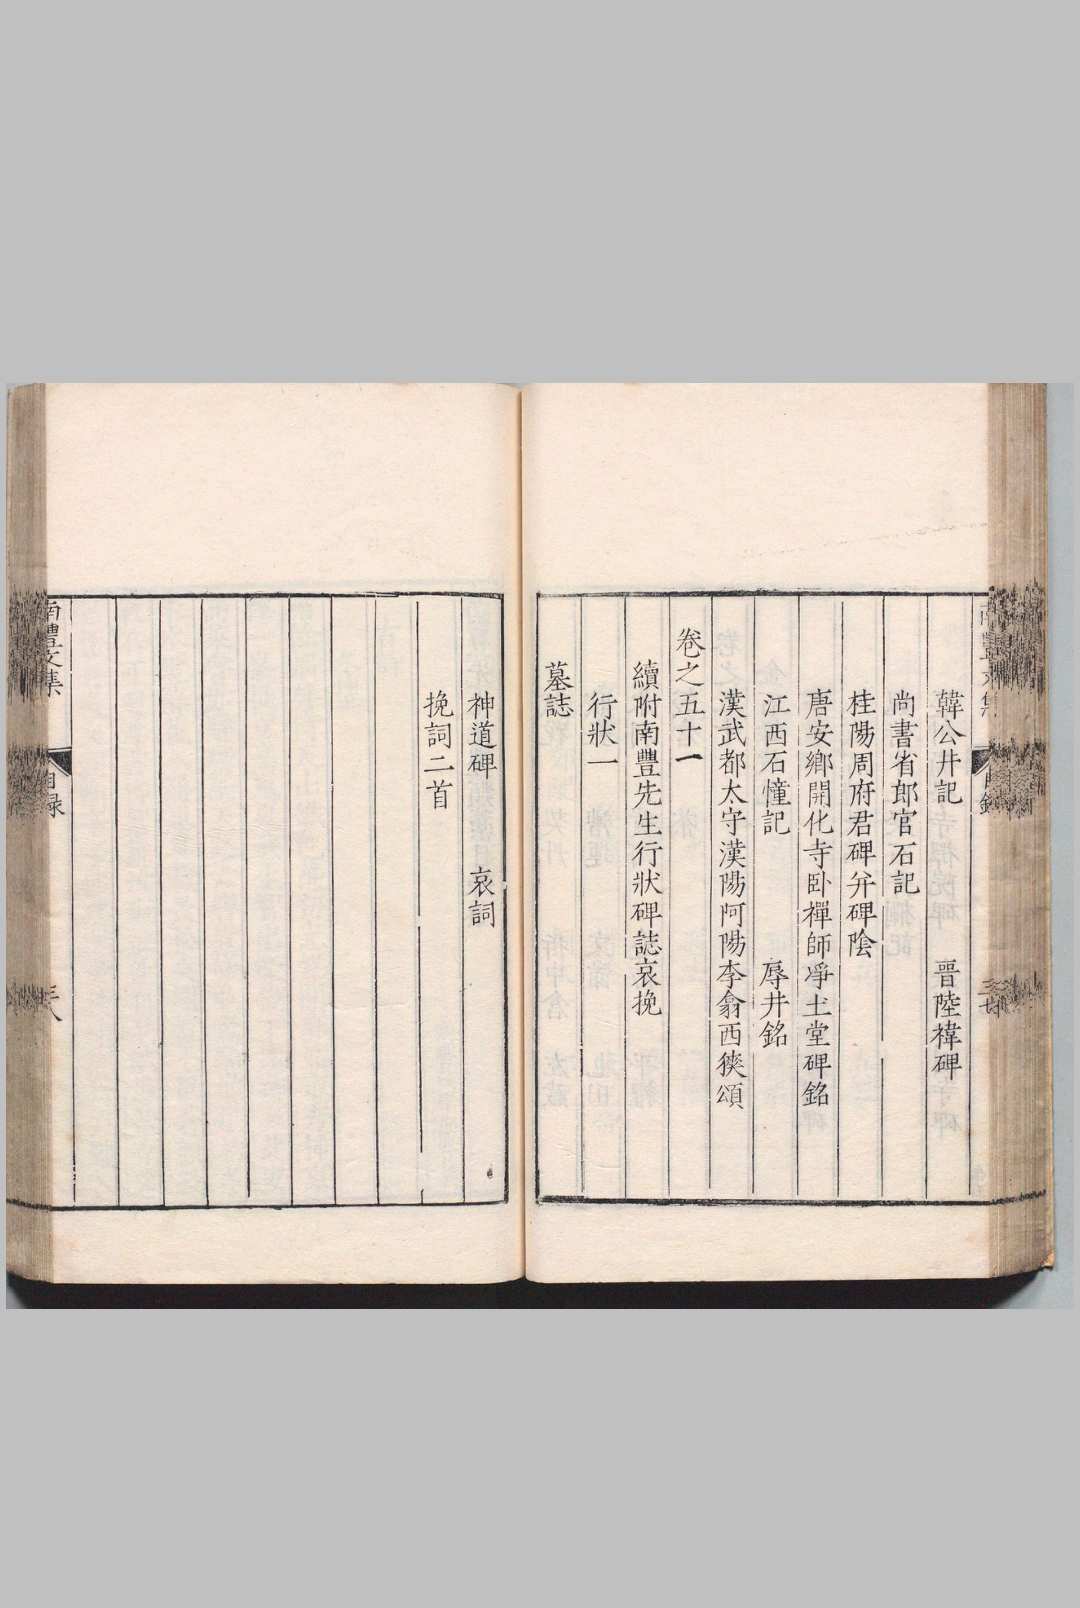 韓公井記　晉陸褘碑
尚書省郎官石記
桂陽周府君碑并碑陰
唐安鄉開化寺卧禪師淨土堂碑銘
江西石幢記　辱井銘
漢武都太守漢陽阿陽李翕西狹頌
卷之五十一
續附南豐先生行狀碑誌哀挽
行狀一
墓誌
神道碑　哀詞
挽詞二首
南豐文集
目錄
三八